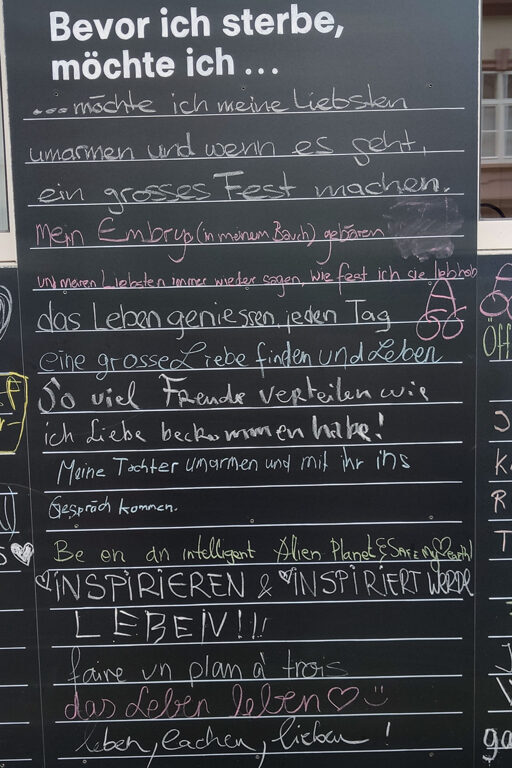 Bevor ich sterbe,
möchte ich ...
...möchte ich meine Liebsten
umarmen und wenn es geht,
ein grosses Fest machen.
Mein Embryo (in meinem Bauch) gebären
und meinen Liebsten immer wieder sagen, wie fest ich sie liebhab
das Leben geniessen, jeden Tag
eine grosse Liebe finden und Leben
So viel Freude verteilen wie
ich Liebe beckommen habe!
Meine Tochter umarmen und mit ihr ins
Gespräch kommen.
Be en an intelligent Alien Planet & SAFE my ♡ earth!
♡INSPIRIEREN & ♡INSPIRIERT WERDE
LEBEN!!!
faire un plan à trois
das Leben leben ♡ ☺
leben, lachen, lieben !